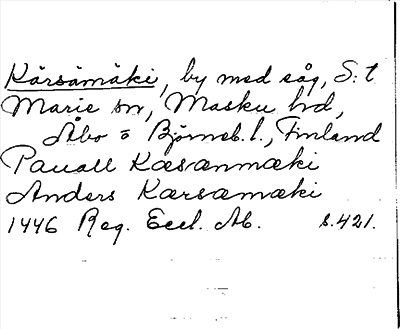 Kärsämäki, by med såg, S:t
Marie sn, Masku hd,
Åbo o Björneb. l., Finland
Pauall Kæsænmæki
Anders Kærsæmæki
1446 Reg. Eccl. Ab. s.421.